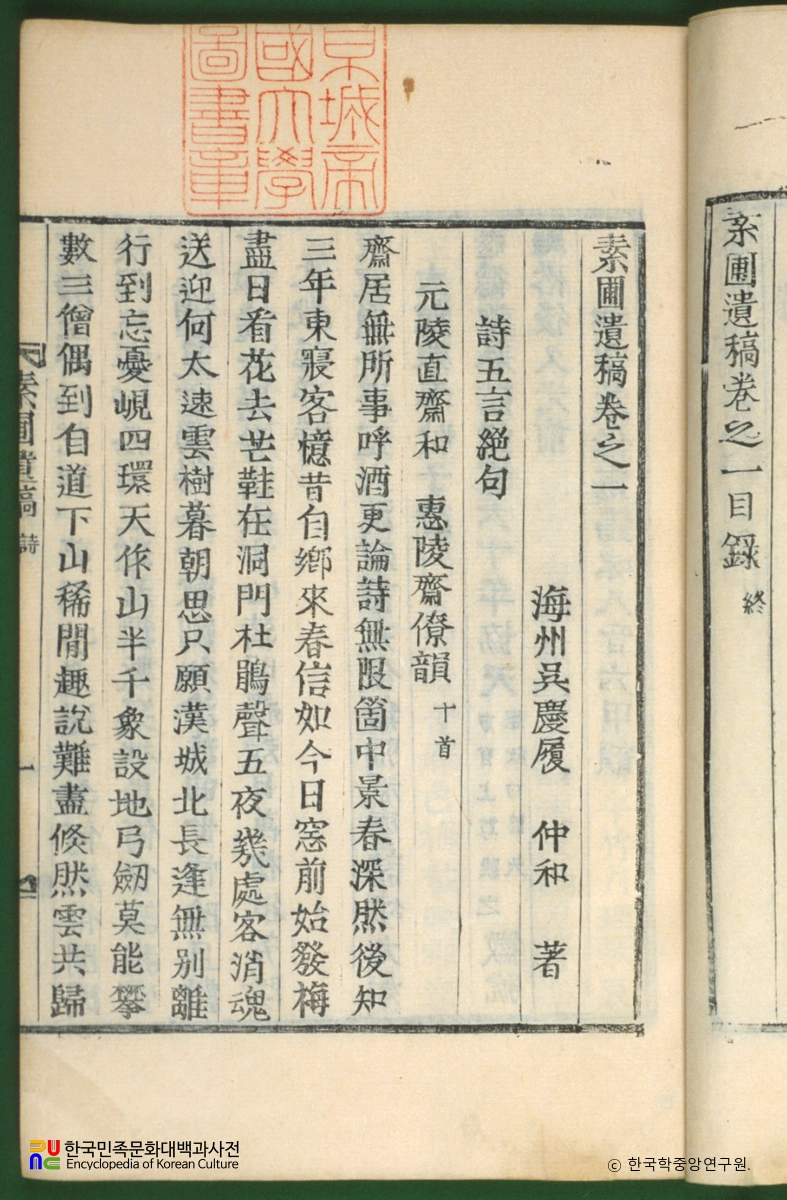 素圃遺稿卷之一目錄 終
京城帝
國大學
圖書章
素圃遺稿卷之一
海州吳慶履 仲和 著
詩五言絕句
元陵直齋和 惠陵齋僚韻 十首
齋居無所事呼酒更論詩無限箇中景春深然後知
三年東寢客憶昔自鄉來春信如今日窓前始發梅
盡日看花去芒鞋在洞門杜鵑聲五夜幾處客消魂
送迎何太速雲樹暮朝思只願漢城北長逢無別離
行到忘憂峴四環天作山半千象設地弓劒莫能攀
數三僧偶到自道下山稀閒趣說難盡倏然雲共歸
素圃遺稿 詩
一
한국민족문화대백과사전
Encyclopedia of Korean Culture
ⓒ 한국학중앙연구원.